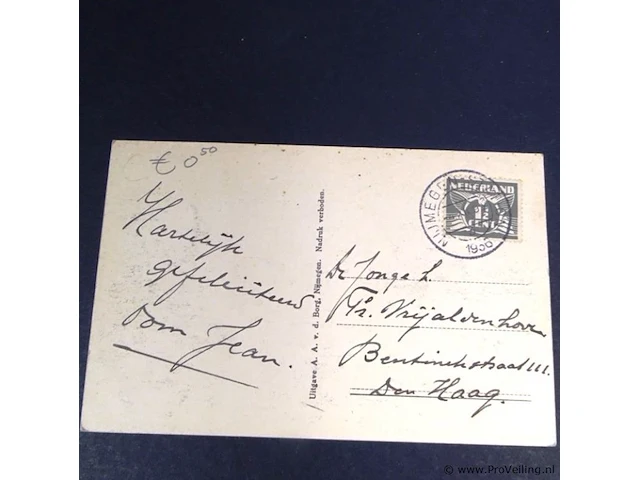 € 0 50
Hartelijk
gefeliciteerd
Oom Jean.
Uitgave A. A. v. d. Borg, Nijmegen. Nadruk verboden.
NIJMEGEN
1936
NEDERLAND
1½
CENT
De Jonge L.
Fr. Vrijaldenhoven
Bentinckstraat 111.
Den Haag.
© www.ProVeiling.nl